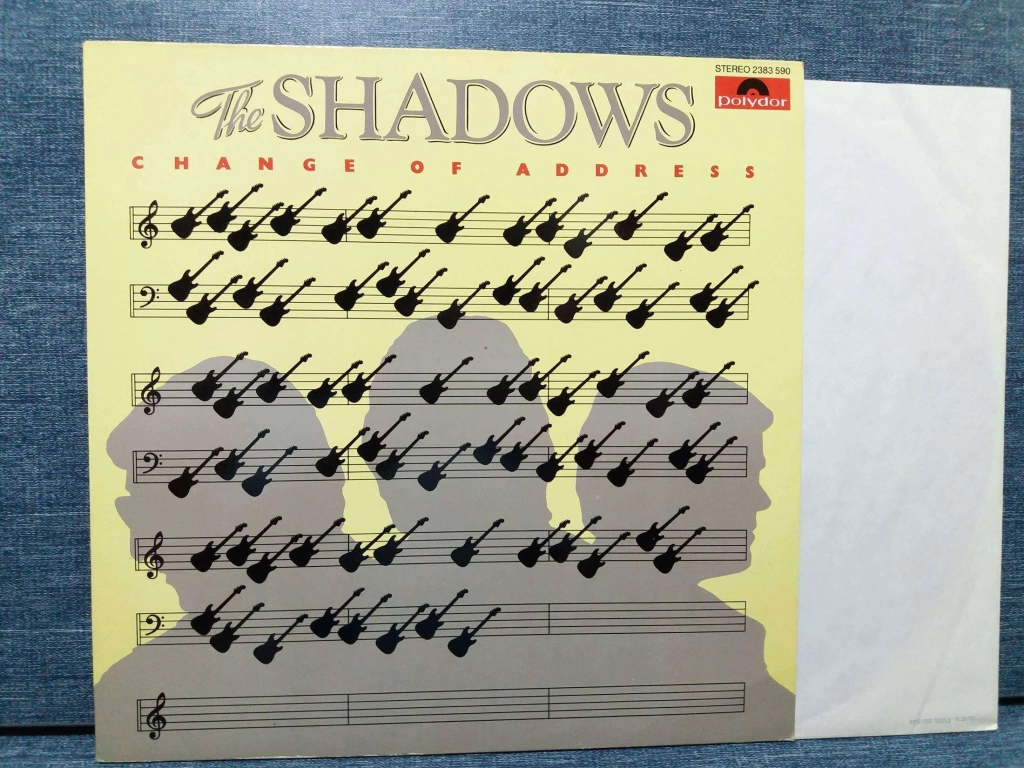 STEREO 2383 590
polydor
The SHADOWS
CHANGE OF ADDRESS